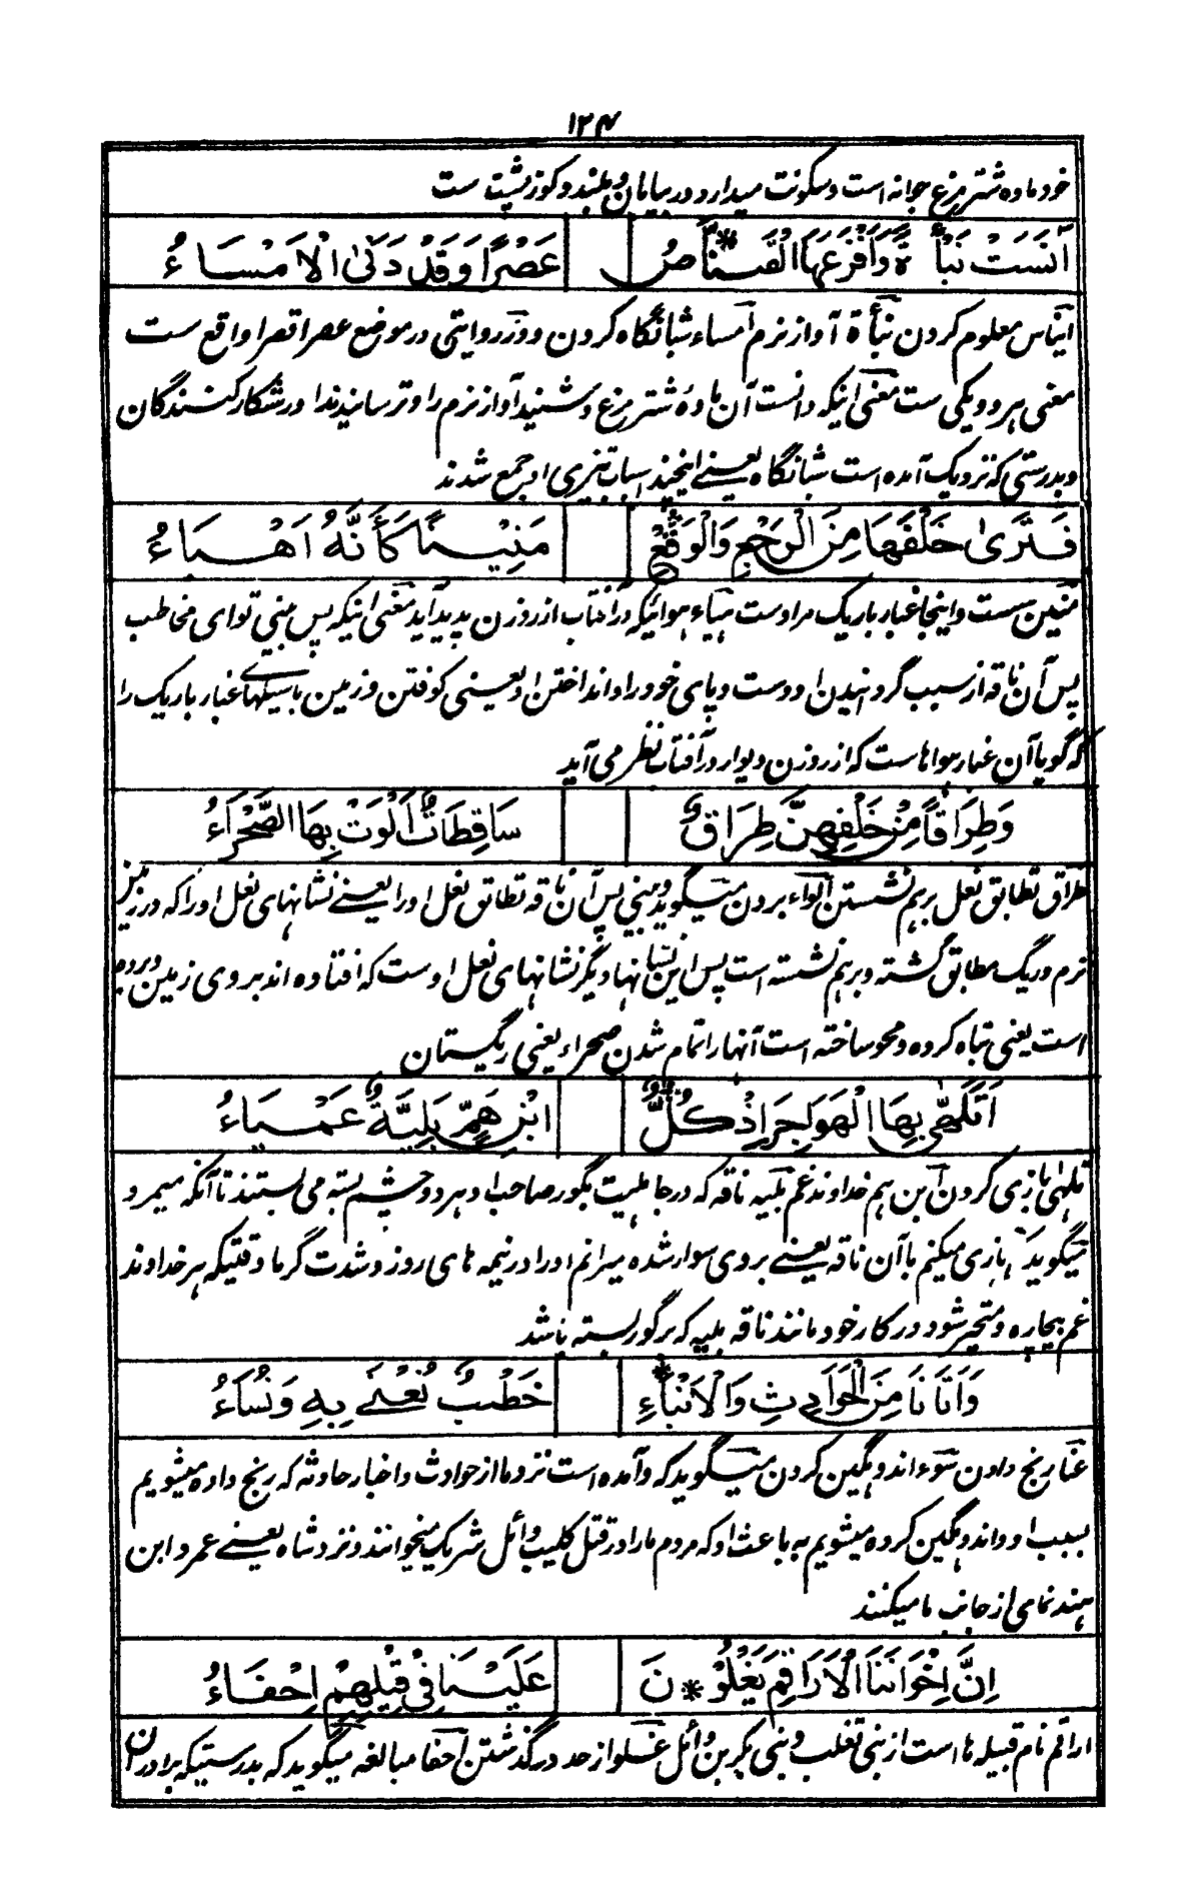 ۱۲۴
خود ماده شتر مرغ جوانه است وسکونت میدارد در بیابان بلند و کوز پشت ست
آنَسَتْ نَبْأَةً وَأَفْزَعَهَا الْقَنَّاصُ عَصْرًا وَقَدْ دَنَى الْاِمْسَاءُ
ایناس معلوم کردن نبأة آواز نرم امساء شبانگاه کردن و در روایتی در موضع عصرا قصرا واقع ست
معنی هر دو یکی ست معنی اینکه دانست آن ماده شتر مرغ و شنید آواز نرم را و ترسانیدند او را شکار کنندگان
و بدرستی که نزدیک آمده است شبانگاه یعنے اینچنید اسباب تیزی او جمع شدند
فَتَرَىٰ خَلْفَهَا مِنَ الرَّجْعِ وَالْوَقْعِ مَنِيْنًا كَأَنَّهُ اَهْبَاءُ
منین سست و اینجا غبار باریک مراد ست هباء هوائیکه در آفتاب از روزن پدید آید معنی اینکه پس مبینی تو ای مخاطب
پس آن ناقه از سبب گردانیدن او دست و پای خود را و انداختن او یعنی کوفتن و زمین غبار باریک را
که گویا آن غبار هواهاست که از روزن دیوار در آفتاب نظر می آید
وَطِرَاقًا مِنْ خَلْفِهِنَّ طِرَاقٌ سَاقِطَاتٌ اَلْوَتْ بِهَا الصَّحْرَاءُ
طراق تطابق نعل برهم نشستن الواء بردن میگوید و بینی پس آن ناقه تطابق نعل او را یعنے نشانهای نعل او را که در زمین
نرم و ریگ مطابق گشته و برهم نشسته است پس این نشانها دیگر نشانهای نعل اوست که افتاده اند بر وی زمین و برده
است یعنی تباه کرده و محو ساخته است آنها را تمام شدن صحراء یعنی ریگستان
اَتَلَهَّى بِهَا الْهَوَاجِرَ اِذْ كُلُّ ابْنِ هَمٍّ بَلِيَّةٌ عَمْيَاءُ
تلهی بازی کردن ابن هم خداوند غم بلیه ناقه که در جاهلیت بگور صاحب او هر دو چشم بسته می بستند تا آنکه میمرد
میگوید بازی میکنم با آن ناقه یعنے بروی سوار شده میرانم او را در نیمه های روز و شدت گرما وقتیکه هر خداوند
غم بیچاره و متحیر شود در کار خود مانند ناقه بلیه که بر گور بسته باشد
وَاَتَانَا مِنَ الْحَوَادِثِ وَالْاَنْبَاءِ خَطْبٌ نُعْنٰى بِهِ وَنُسَاءُ
عنا رنج دادن سوء اندوهگین کردن میگوید که و آمده است نزد ما از حوادث و اخبار حادثه که رنج داده میشویم
بسبب او و اندوهگین کرده میشویم به باعث او که مردم ما را در قتل کلیب وائل شریک میخوانند و نزد شاه یعنے عمرو ابن
هند نمای از جانب ما میکنند
اِنَّ اِخْوَانَنَا الْاَرَاقِمَ يَغْلُوْنَ عَلَيْنَا فِيْ قِيْلِهِمْ اِحْفَاءُ
اراقم نام قبیله ها است از بنی تغلب و بنی بکر بن وائل غلو از حد در گذشتن احفا مبالغه میگوید که بدرستیکه برادران